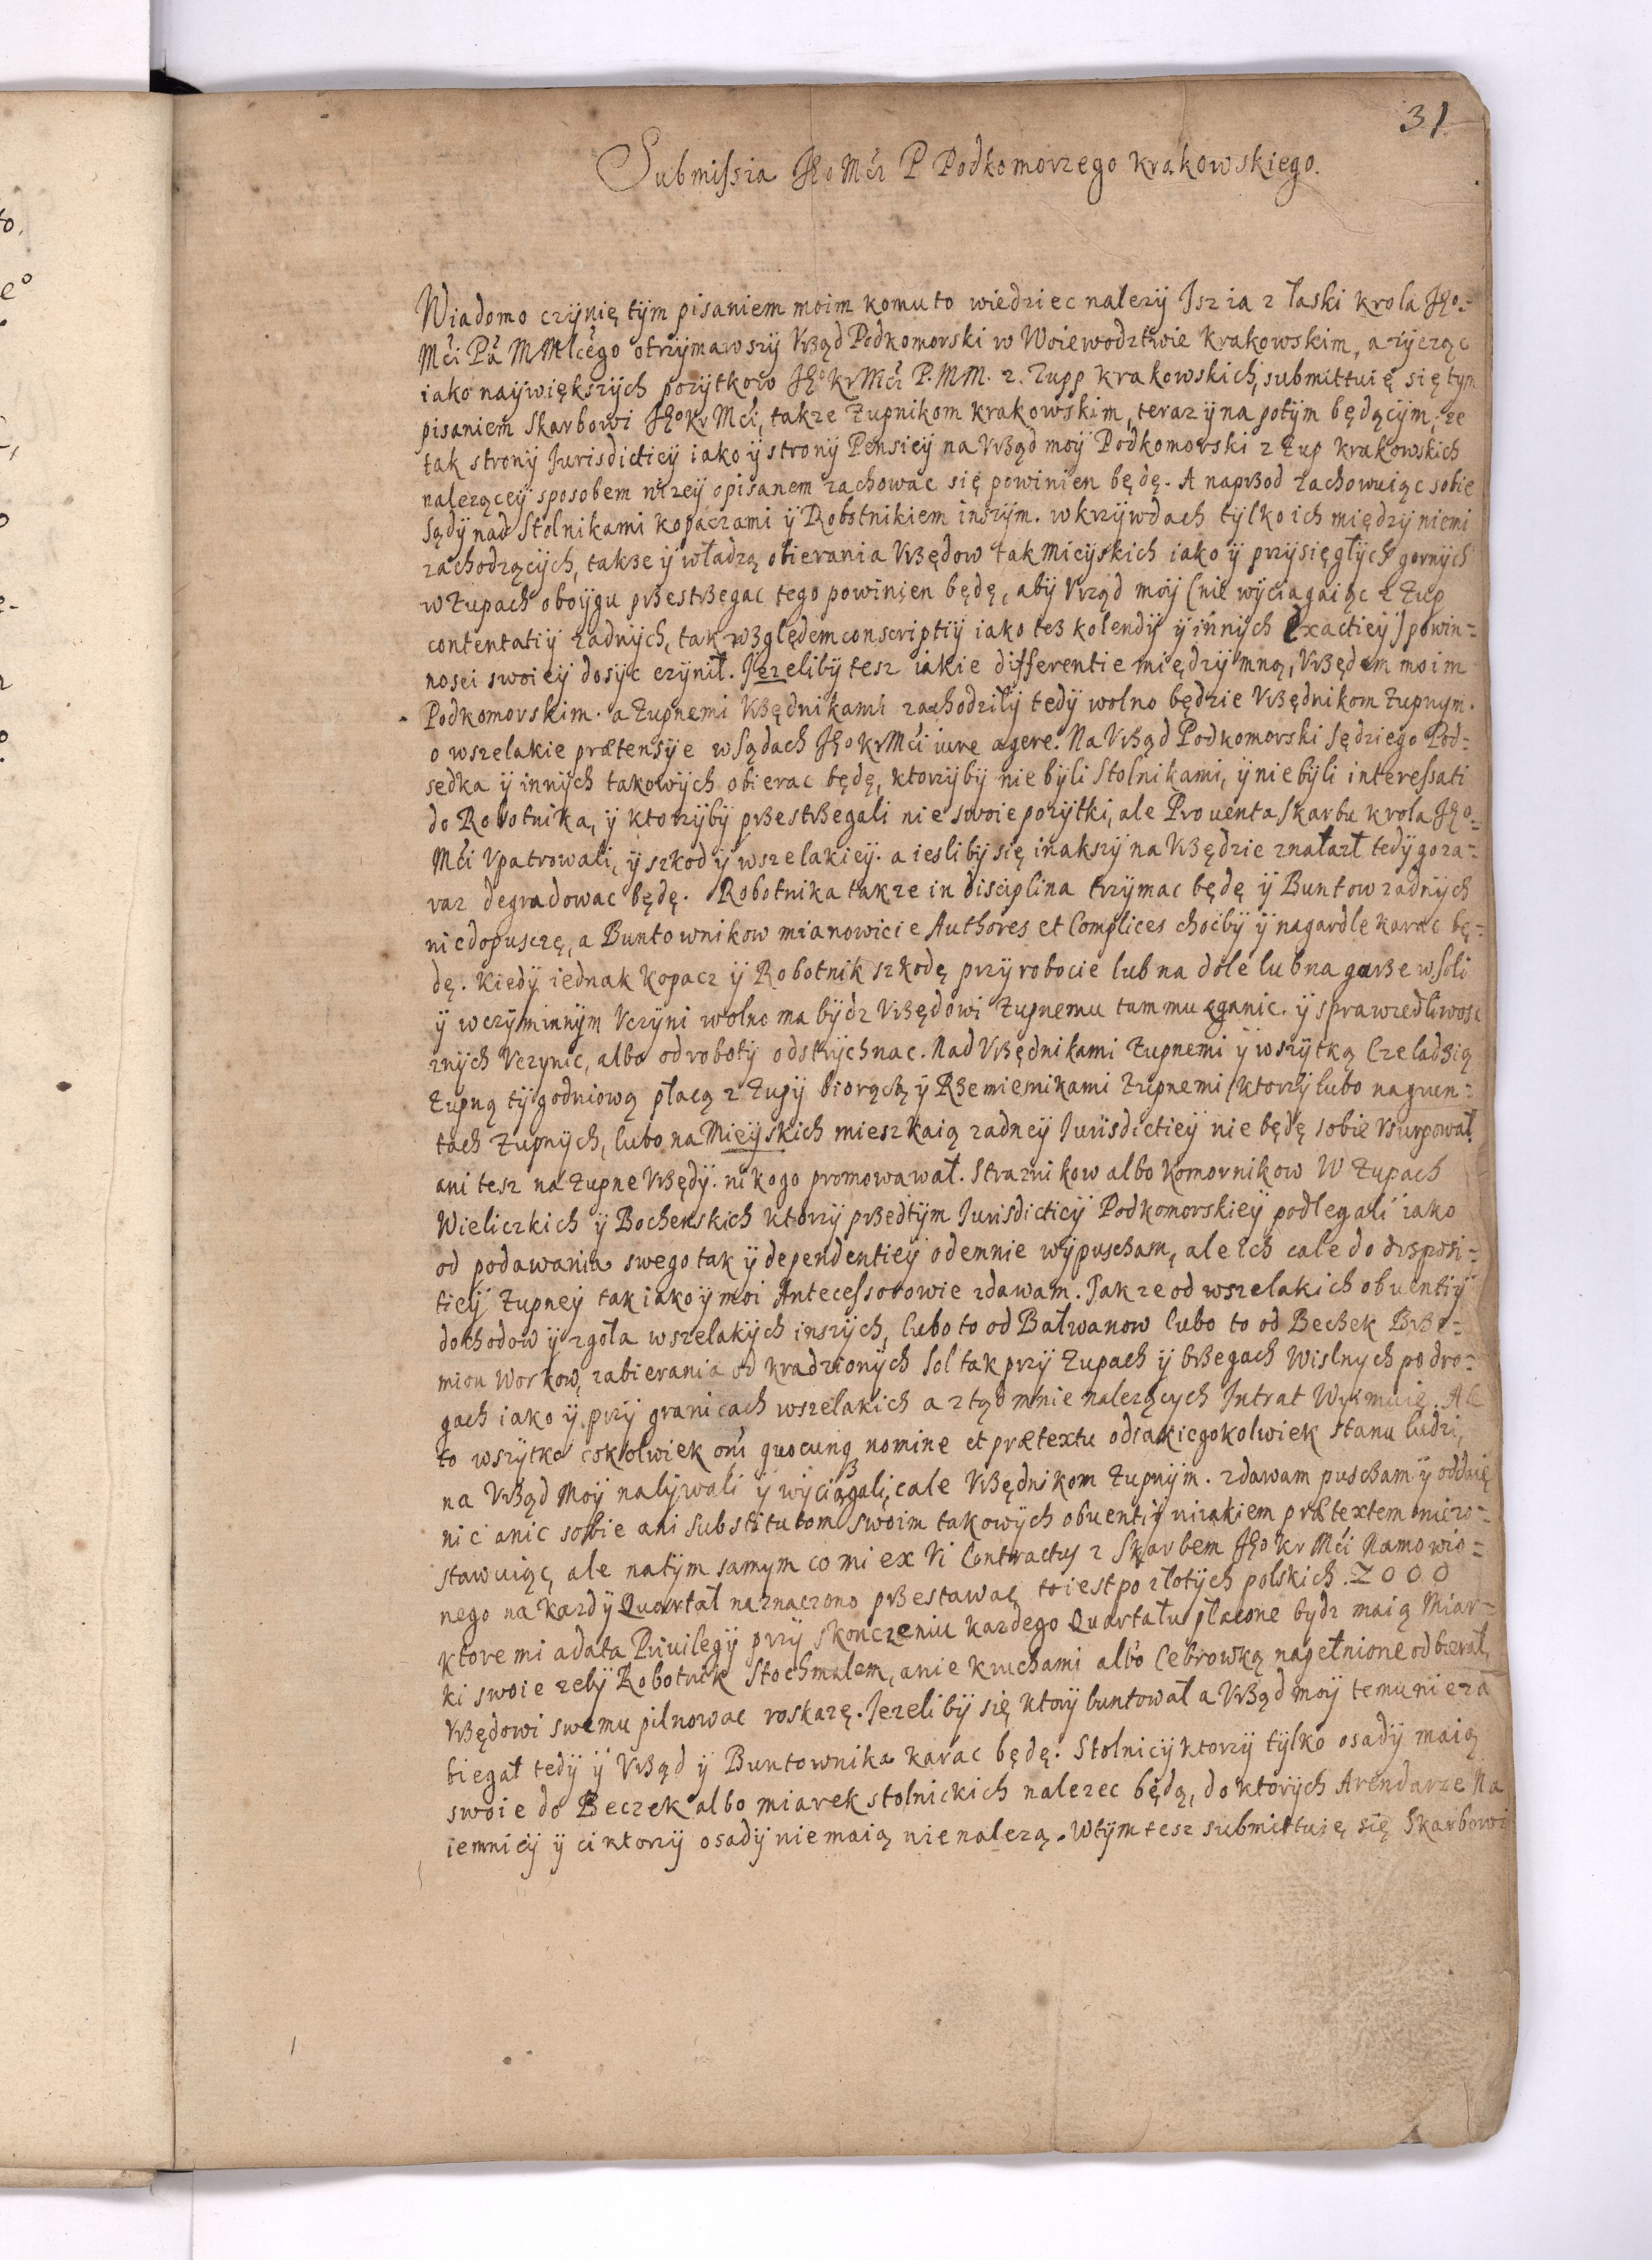 31
Submissia Jego Mći P Podkomorzego krakowskiego.
Wiadomo czÿnię tÿm pisaniem moim komu to wiedziec nalezÿ Jsz ia z łaski krola Jego=
Mći Pa MMłcego otrzÿmawszÿ Vrząd Podkomorski w Woiewodztwie krakowskim, a zÿcząc
iako naÿwiększÿch pozÿtkow Jego kr Mći P. MM. z. Zupp krakowskich, submittuię się tÿm
pisaniem Skarbowi Jego kr Mći, takze Zupnikom krakowskim, teraz ÿ na potÿm będącÿm, ze
tak stronÿ Jurisdicticÿ iako ÿ stronÿ Pensieÿ na Vrząd moÿ Podkomorski z Zup krakowskich
nalezączeÿ sposobem nizeÿ opisanem zachowac się powinien będę. A naprzod zachowuiąc sobie
Sądÿ nad Stolnikami kopaczami ÿ Robotnikiem inszÿm. w krzÿwdach tÿlko ich międzÿ niemi
zachodzącÿch, takze ÿ władzą obierania Vrzędow tak Mieÿskich iako ÿ przÿsięgłÿch gornÿch
w Zupach oboÿgu przestrzegac tego powinien będę, abÿ Vrząd moÿ (nie wÿciagaiąc z Zup
contentatiÿ zadnÿch, tak względem conscriptiÿ iako tesz kolendÿ ÿ innÿch Exactieÿ) powin=
nosci swoieÿ dosÿc czÿnił. Jezelibÿ tesz iakie differentie międzÿ mną, Vrzędem moim
Podkomorskim. a Zupnemi Vrzędnikami zachodziłÿ tedÿ wolno będzie Vrzędnikom Zupnym.
o wszelakie prætensÿe w Sądach Jego kr Mći iure agere. Na Vrząd Podkomorski Sędziego Pod=
sedka ÿ innÿch takowÿch obierac będę, ktorzÿbÿ nie bÿli Stolnikami, ÿ nie bÿli interessati
do Robotnika, ÿ ktorzÿbÿ przestrzegali nie swoie pozÿtki, ale Prouenta Skarbu krola Jego=
Mći Vpatrowali, ÿ szkodÿ wszelakieÿ. a ieslibÿ się inakszÿ na Vrzędzie znałazł tedÿ go za=
raz degradowac będę. Robotnika takze in disciplina trzÿmac będę ÿ Buntow zadnÿch
niedopuszczę, a Buntownikow mianowicie Authores et Complices choćbÿ ÿ na gardle karac bę=
dę. Kiedÿ iednak Kopacz ÿ Robotnik szkodę przÿ robocie lub na dole lub na gurze w Soli
ÿ w czÿm innÿm Vczÿni wolno ma bÿdz Vrzędowi Zupnemu tam mu ganic. ÿ sprawiedliwosc
znÿch Vczynic, albo od robotÿ odstrÿchnac. Nad Vrzędnikami Zupnemi ÿ wszÿtką Czeladzią
Zupną tÿgodniową płacą z Zupÿ biorącą ÿ Rzemiesnikami Zupnemi ktorzÿ lubo na grun=
tach Zupnÿch, lubo na Mieÿskich mieszkaią zadneÿ Jurisdictieÿ nie będę sobie Vsurpował
ani tesz na Zupne Vrzędÿ. nikogo promowawał. Straznikow albo Komornikow W Zupach
Wieliczkich ÿ Bochenskich ktorzÿ przedtÿm Jurisdicticÿ Podkomorskieÿ podlegali iako
od podawania swego tak ÿ dependentieÿ odemnie wÿpuscham, ale Ich cale do dispositi=
tieÿ Zupneÿ tak iako ÿ moi Antecessorowie zdawam. Takze od wszelakich obuentiÿ
dochodow ÿ zgoła wszelakÿch inszÿch, lubo to od Bałwanow lubo to od Beczek Brze=
mion Workow, zabierania od kradzionÿch Sol tak przÿ Zupach ÿ brzegach Wislnych po dro=
gach iako ÿ przÿ granicach wszelakich a ztąd mnie nalezących Jntrat Wyimuię. Ale
to wszÿtko cokolwiek oni quocunq nomine et prætextu od iakiegokolwiek stanu ludzi,
na Vrząd Moÿ nabÿwali ÿ wÿciągali, cale Vrzędnikom Zupnÿm. zdawam puscham ÿ oddaię
nic a nic sobie ani Substitutom swoim takowÿch obuentiÿ niiakiem prætextem niezo=
stawuiąc, ale natÿm samym co mi ex Vi Contractus z Skarbem Jego kr Mći Namowio=
nego na kazdÿ Quartał naznaczono przestawac, to iest po złotÿch polskich. 2000
ktore mi adata Priuilegÿ przÿ skonczeniu kazdego Quartału płacone bydz maią Miar=
ki swoie zebÿ Robotnik Stochmalem, a nie kruchami albo Cebrowką napełnione odbierał,
Vrzędowi swemu pilnowac roskazę. Jezelibÿ się ktorÿ buntował a Vrząd moÿ temu nieza
biegał tedÿ ÿ Vrząd ÿ Buntownika karac będę. Stolnicÿ ktorzÿ tÿlko osadÿ maią
swoie do Beczek albo miarek stolnickich nalezec będą, do ktorÿch Arendarze Na
iemnicÿ ÿ ci ktorzÿ osadÿ niemaią nie nalezą. W tÿm tesz submittuię się Skarbowi